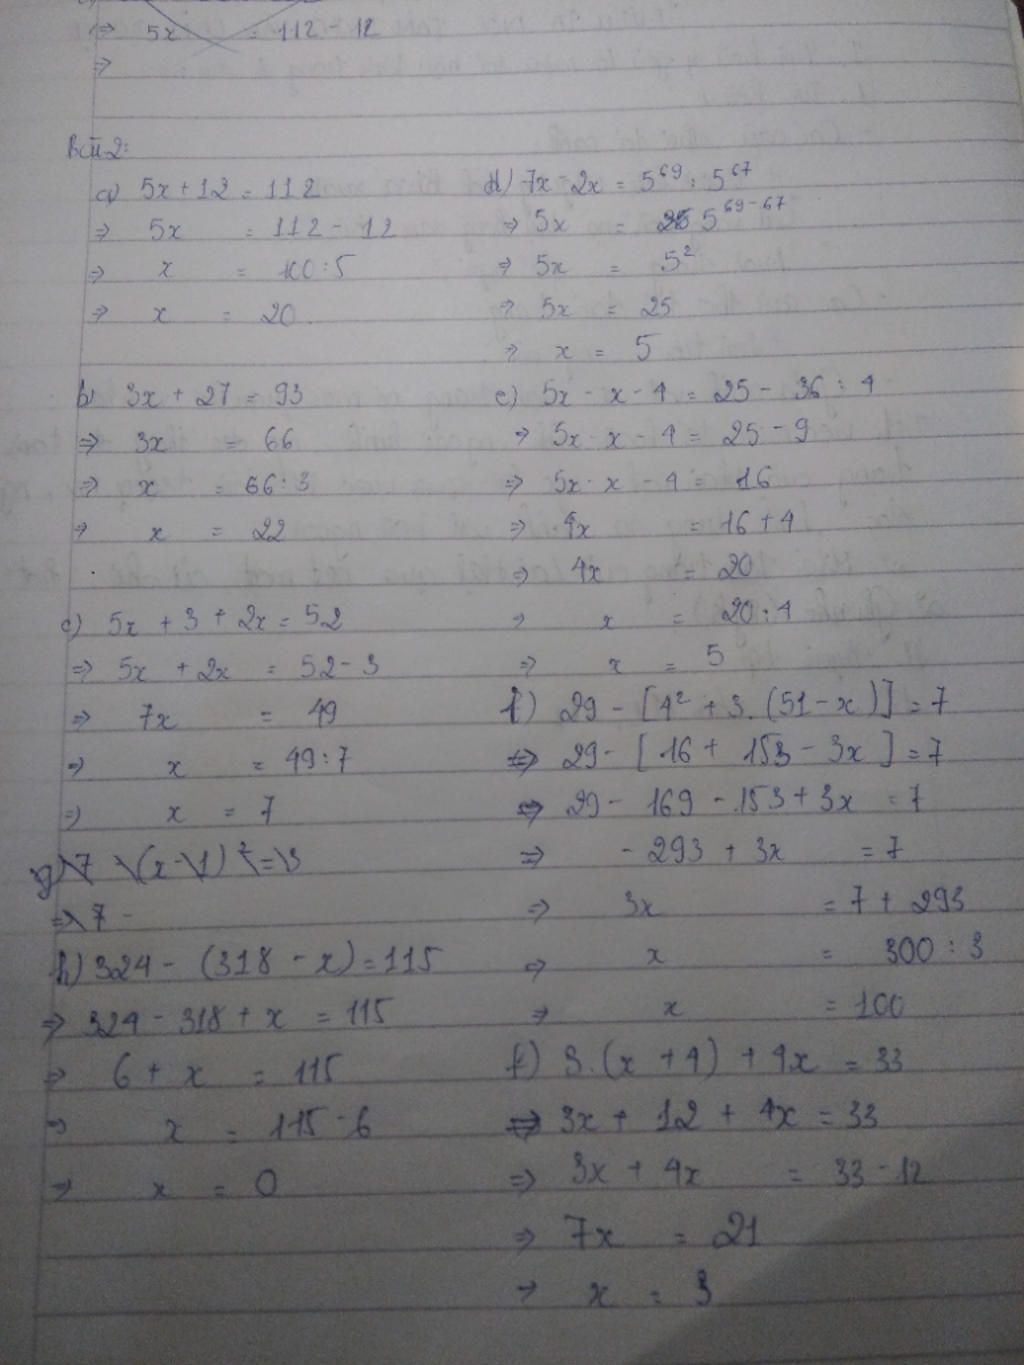 ⇒ 5x = 112 - 12
⇒
Bài 2:
a) 5x + 12 = 112
⇒ 5x = 112 - 12
⇒ x = 100 : 5
⇒ x = 20
b) 3x + 27 = 93
⇒ 3x = 66
⇒ x = 66 : 3
⇒ x = 22
c) 5x + 3 + 2x = 52
⇒ 5x + 2x = 52 - 3
⇒ 7x = 49
⇒ x = 49 : 7
⇒ x = 7
g) 7 (x - 1)² = 3
⇒ 7 -
h) 324 - (318 - x) = 115
⇒ 324 - 318 + x = 115
⇒ 6 + x = 115
⇒ x = 115 - 6
⇒ x = 0
d) 7x - 2x = 5⁶⁹ : 5⁶⁷
⇒ 5x = 5⁶⁹⁻⁶⁷
⇒ 5x = 5²
⇒ 5x = 25
⇒ x = 5
e) 5x - x - 4 = 25 - 36 : 4
⇒ 5x - x - 4 = 25 - 9
⇒ 5x - x - 4 = 16
⇒ 4x = 16 + 4
⇒ 4x = 20
⇒ x = 20 : 4
⇒ x = 5
f) 29 - [4² + 3.(51 - x)] = 7
⇒ 29 - [16 + 153 - 3x] = 7
⇒ 29 - 169 - 153 + 3x = 7
⇒ - 293 + 3x = 7
⇒ 3x = 7 + 293
⇒ x = 300 : 3
⇒ x = 100
f) 3.(x + 4) + 4x = 33
⇒ 3x + 12 + 4x = 33
⇒ 3x + 4x = 33 - 12
⇒ 7x = 21
⇒ x = 3